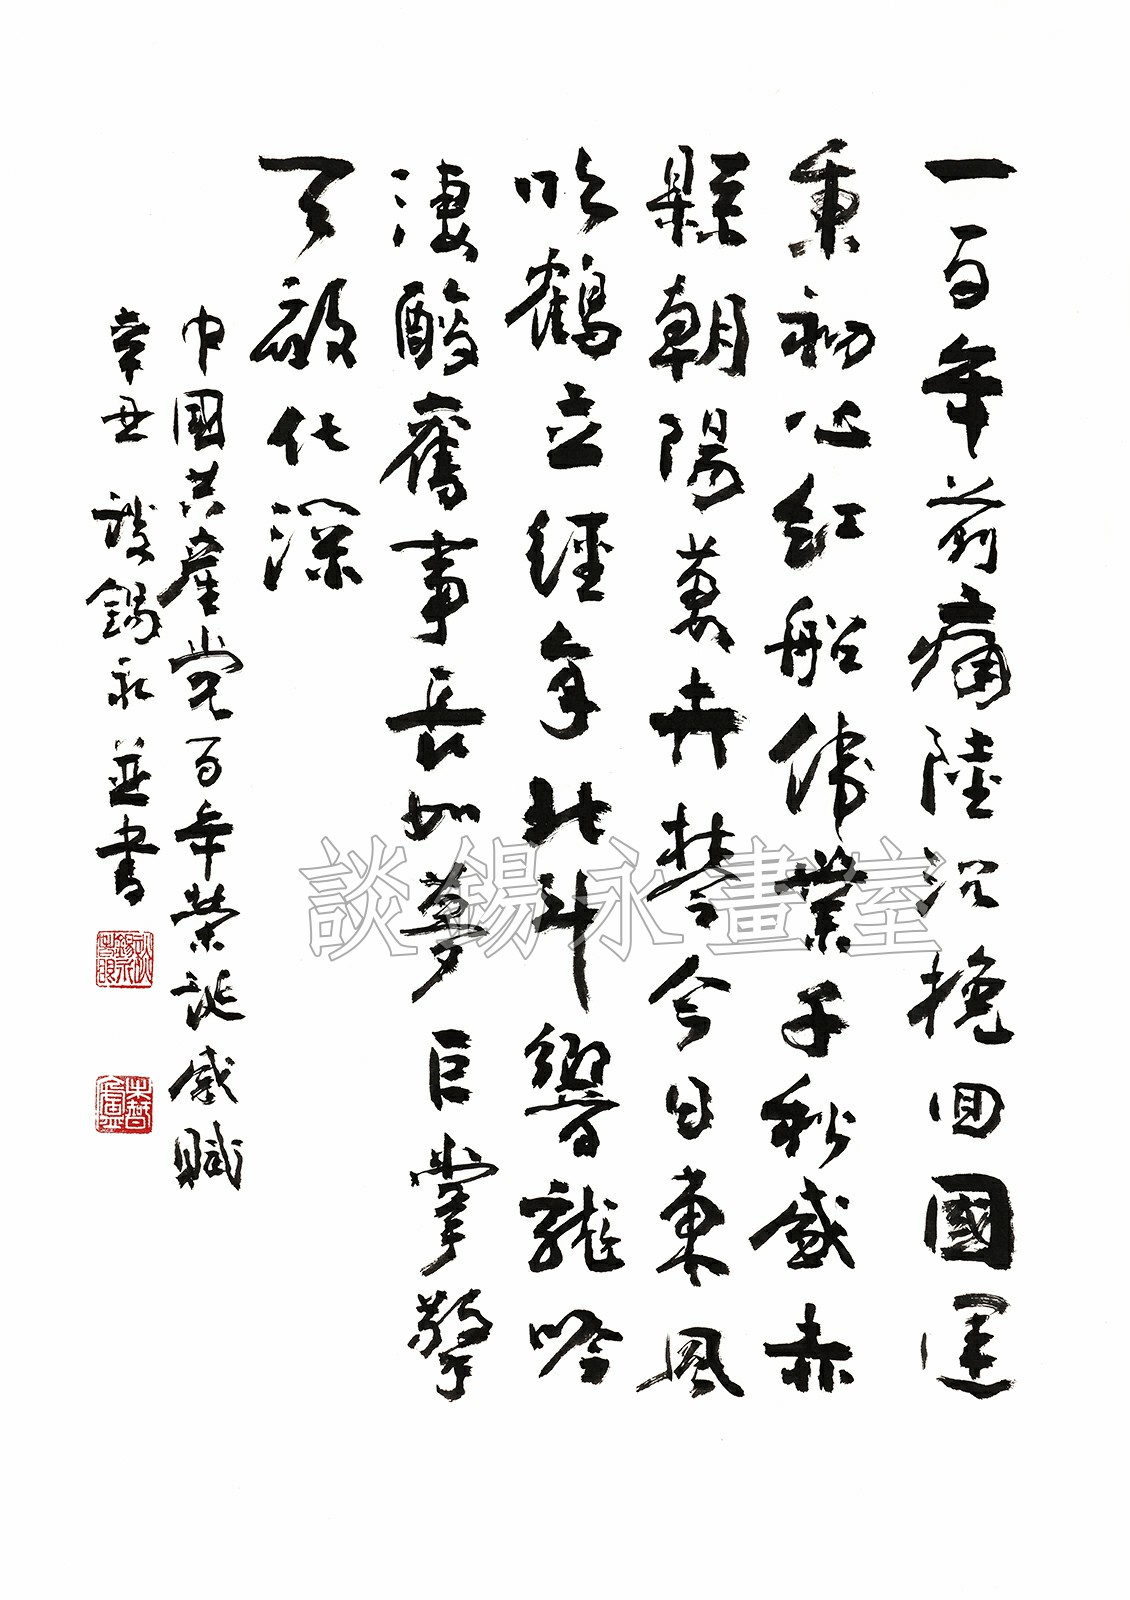 一百年前痛陸沉挽回國運
秉初心紅船偉業千秋感赤
縣朝陽萬卉棽今日東風
吹鶴立經年北斗響龍吟
淒酸舊事長如夢巨掌擎
天被化深
中國共產黨百年榮誕感賦
辛丑 談錫永並書
談錫永畫室